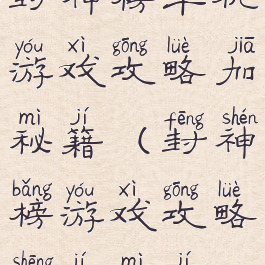 yóu xì gōng lüè jiā
游戏攻略加
mì jí fēng shén
秘籍(封神
bǎng yóu xì gōng lüè
榜游戏攻略
shēng jí mì jí